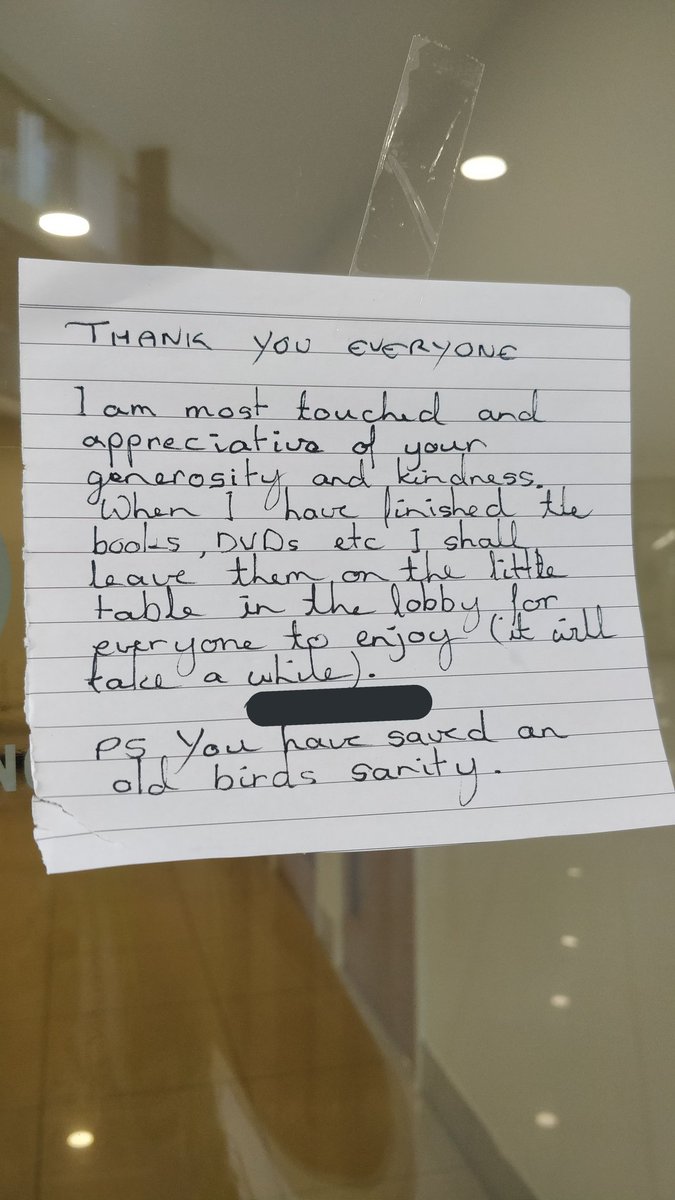 THANK YOU EVERYONE
I am most touched and
appreciative of your
generosity and kindness.
When I have finished the
books, DVDs etc I shall
leave them on the little
table in the lobby for
everyone to enjoy (it will
take a while).
PS You have saved an
old birds sanity.
N